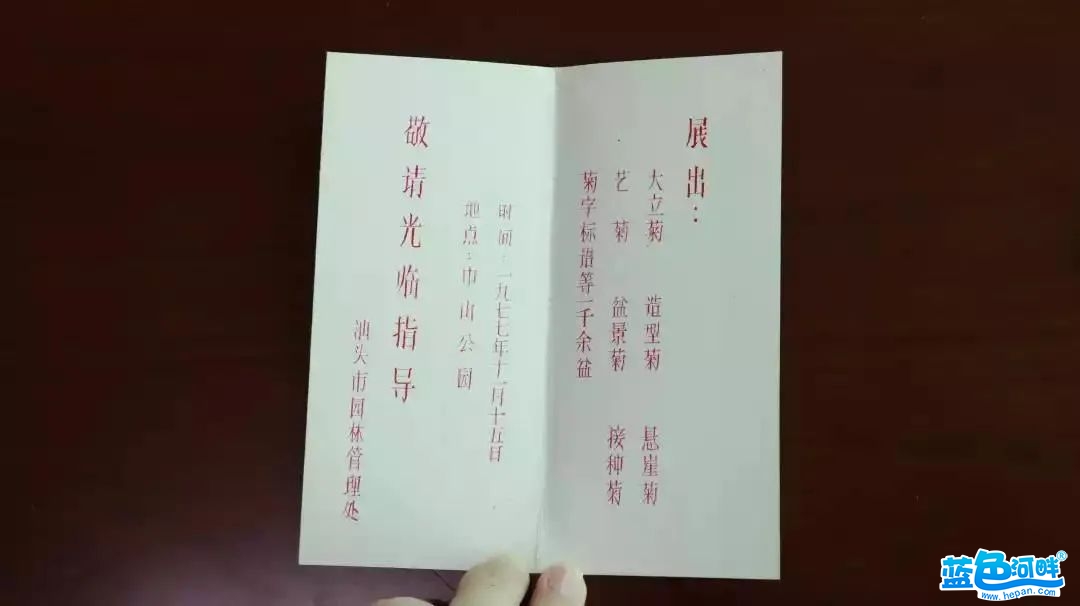 展出：
大立菊 造型菊 悬崖菊
艺菊 盆景菊 接种菊
菊字标语等一千余盆
时间：一九七七年十一月十五日
地点：中山公园
敬请光临指导
汕头市园林管理处
蓝色河畔®
www.hepan.com